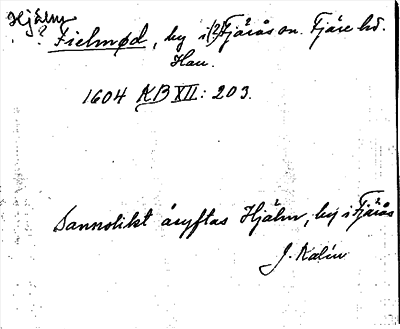 Hjälm
? Fielmød, by i (?) Fjärås sn. Fjäre hd.
Hall.
1604 AB XII: 203.
Sannolikt åsyftas Hjälm, by i Fjärås
J. Kalén